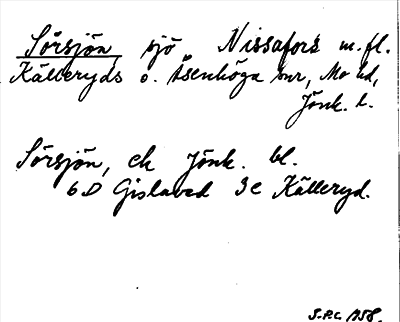 Sörsjön, sjö Nissafors m.fl.
Källeryds o. Åsenhöga snr, Mo hd,
Jönk. l.
Sörsjön, ek Jönk. bl.
6D Gislaved 3c Källeryd.
1958.